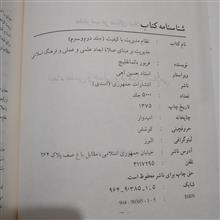 شناسنامه کتاب
نام کتاب : نظام مدیریت با کیفیت (جلد دووسوم)
مدیریت بر مبنای صلاة ابعاد علمی و عملی و فرهنگ اسلامی
نویسنده :
ویراستار : استاد حسین آهی
ناشر : انتشارات جمهوری (اسدی)
تعداد : ۵۰۰۰ جلد
تاریخ چاپ : ۱۳۷۵
چاپخانه : امیدوار
حروفچینی : کوشش
لیتوگرافی : البرز
آدرس ناشر : خیابان جمهوری اسلامی، مقابل باغ صف پلاک ۲۶۴
تلفن : ۳۱۱۷۲۹۵
حق چاپ برای ناشر محفوظ است.
شابک
۹۶۴-۹۰۳۸۵-۱-۵